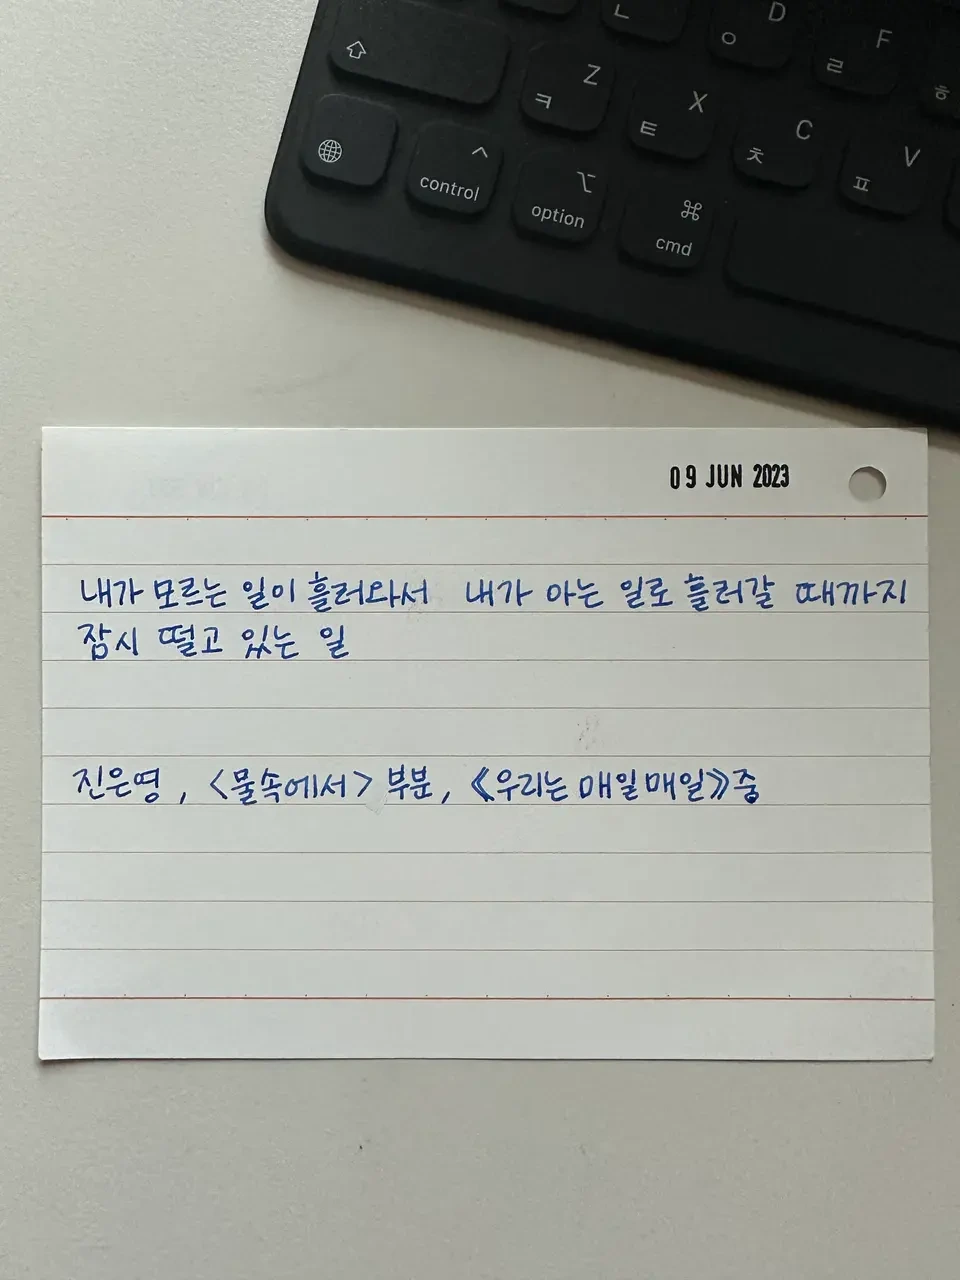 D
F
ㄴ
ㅇ
ㄹ
ㅎ
Z
X
C
V
ㅋ
ㅌ
ㅊ
ㅍ
control
option
cmd
09 JUN 2023
내가 모르는 일이 흘러와서 내가 아는 일로 흘러갈 때까지
잠시 떨고 있는 일
진은영, <물속에서> 부분, 《우리는 매일매일》 중